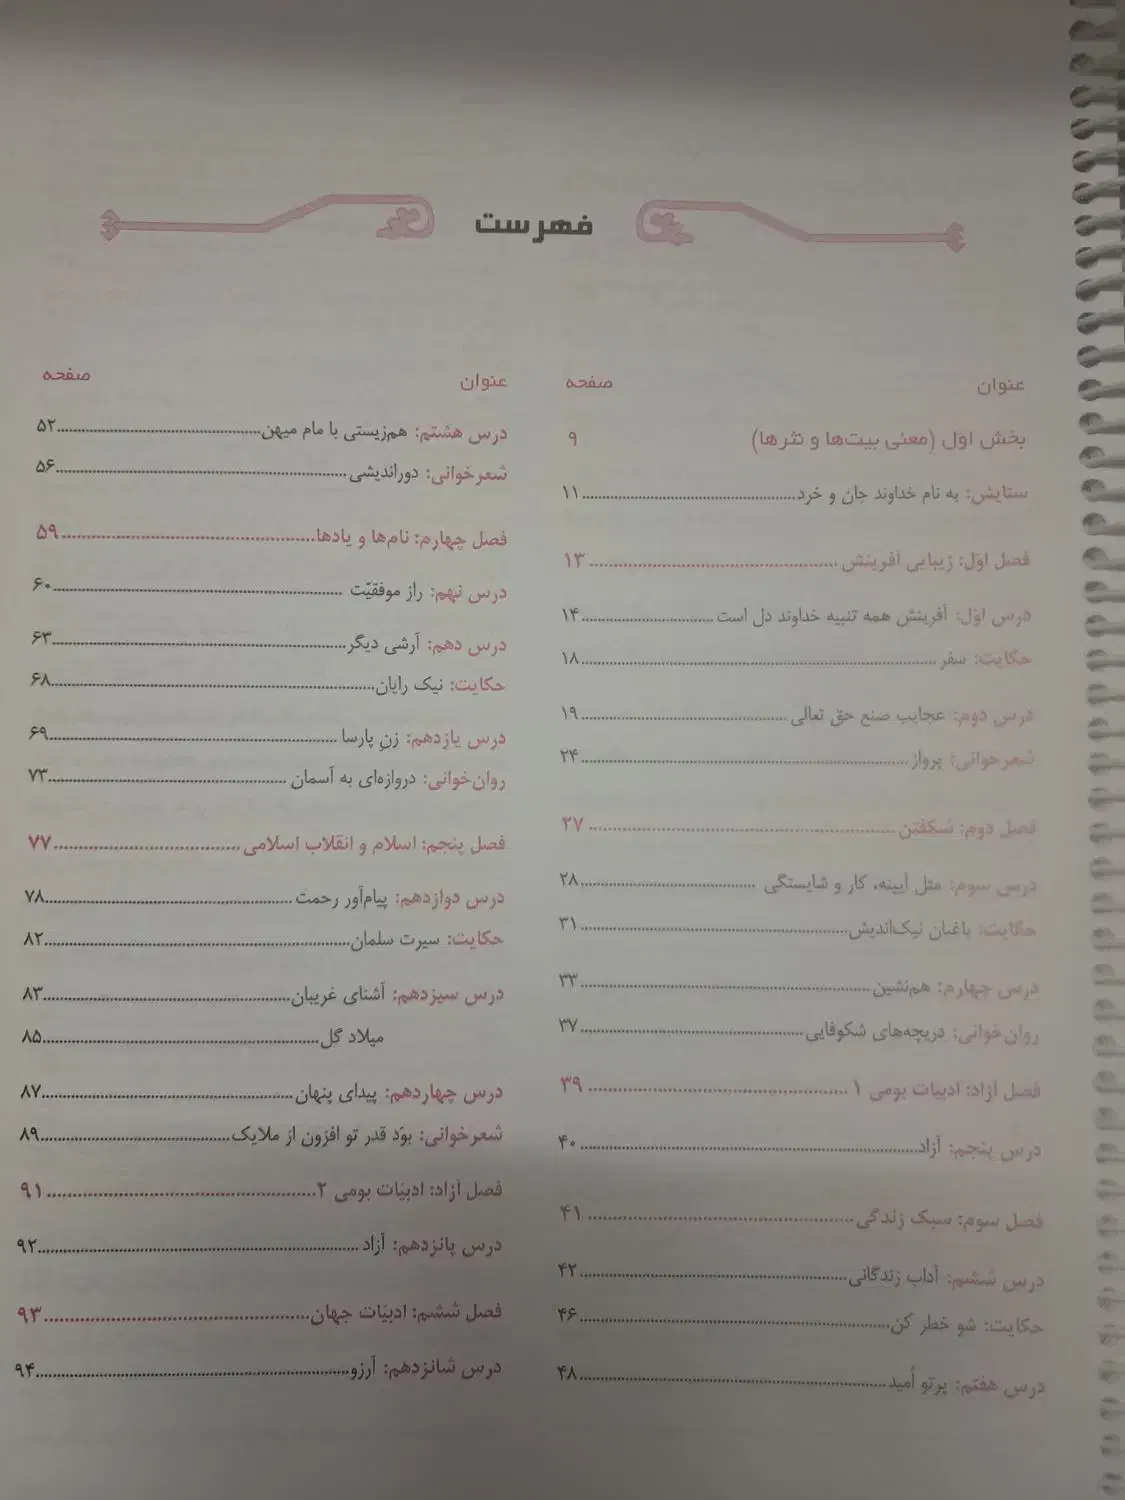 فهرست
عنوان صفحه
بخش اوّل (معنی بیت‌ها و نثرها) ۹
ستایش: به نام خداوند جان و خرد ۱۱
فصل اوّل: زیبایی آفرینش ۱۳
درس اوّل: آفرینش همه تنبیه خداوند دل است ۱۴
حکایت: سفر ۱۸
درس دوم: عجایب صنع حق تعالی ۱۹
شعرخوانی: پرواز ۲۴
فصل دوم: شکفتن ۲۷
درس سوم: مثل آیینه، کار و شایستگی ۲۸
حکایت: باغبان نیک‌اندیش ۳۱
درس چهارم: هم‌نشین ۳۳
روان‌خوانی: دریچه‌های شکوفایی ۳۷
فصل آزاد: ادبیات بومی ۱ ۳۹
درس پنجم: آزاد ۴۰
فصل سوم: سبک زندگی ۴۱
درس ششم: آداب زندگانی ۴۲
حکایت: شو خطر کن ۴۶
درس هفتم: پرتو اُمید ۴۸
عنوان صفحه
درس هشتم: هم‌زیستی با مام میهن ۵۲
شعرخوانی: دوراندیشی ۵۶
فصل چهارم: نام‌ها و یادها ۵۹
درس نهم: راز موفقیّت ۶۰
درس دهم: آرشی دیگر ۶۳
حکایت: نیک رایان ۶۸
درس یازدهم: زنِ پارسا ۶۹
روان‌خوانی: دروازه‌ای به آسمان ۷۳
فصل پنجم: اسلام و انقلاب اسلامی ۷۷
درس دوازدهم: پیام‌آور رحمت ۷۸
حکایت: سیرت سلمان ۸۲
درس سیزدهم: آشنای غریبان ۸۳
میلاد گل ۸۵
درس چهاردهم: پیدای پنهان ۸۷
شعرخوانی: بوَد قدر تو افزون از ملایک ۸۹
فصل آزاد: ادبیّات بومی ۲ ۹۱
درس پانزدهم: آزاد ۹۲
فصل ششم: ادبیّات جهان ۹۳
درس شانزدهم: آرزو ۹۴